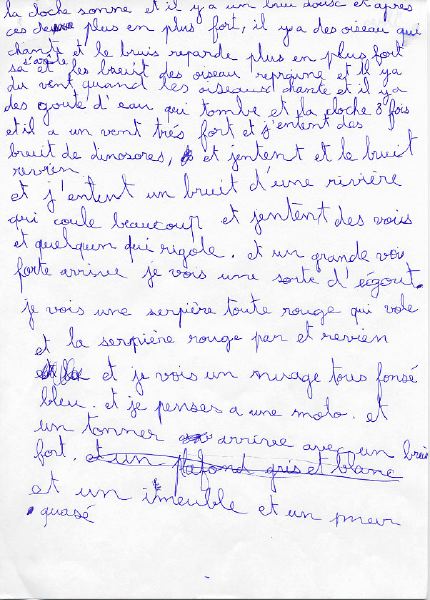 la cloche sonne et il y a un bruit dousc et après
ces de plus en plus fort, il y a des oiseau qui
chante et le bruis reparde plus en plus fort
sa s'arrete et les bruit des oiseau reprenne et il y a
du vent quand les oiseaux chante et il y a
des goute d'eau qui tombe et la cloche 3 fois
et il a un vent très fort et j'entent des
bruit de dinosores, et jentent et le bruit
revien
et j'entent un bruit d'une rivière
qui coule beaucoup et jentent des vois
et quelquun qui rigole. et un grande voix
forte arrivee je vois une sorte d'égout.
je vois une serpière toute rouge qui vole
et la serpière rouge par et revien
et je vois un nuage tous fonsé
bleu. et je penses a une moto. et
un tonner arrivee avec un bruis
fort. et un plafond gris et blanc
et un imeuble et un pneu
quasé